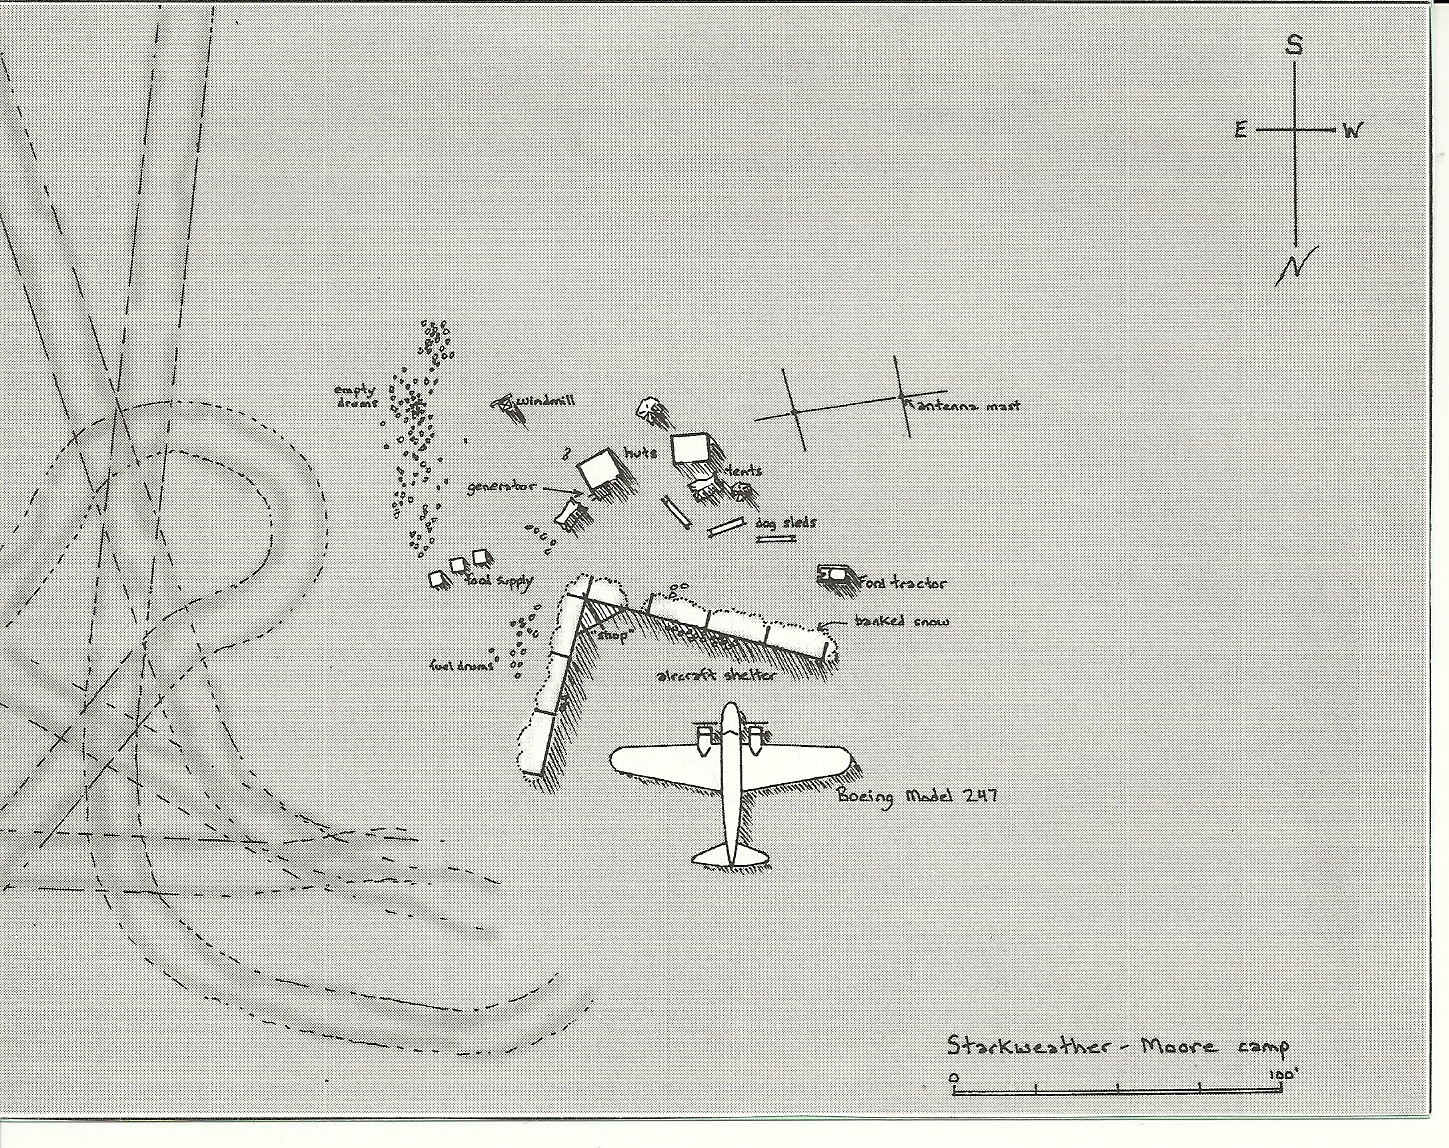 S
E W
N
empty
drums
windmill
antenna mast
huts
tents
generator
dog sleds
food supply
Ford tractor
banked snow
"shop"
fuel drums
aircraft shelter
Boeing Model 247
Starkweather - Moore camp
0 100'